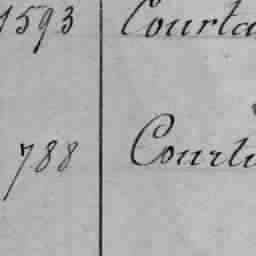 1593 Courta
788 Courti